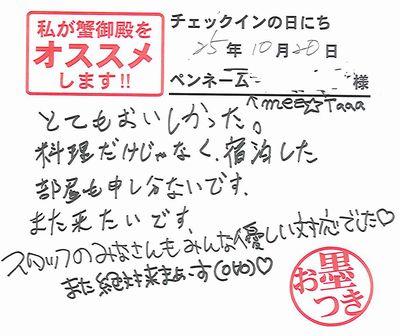 私が蟹御殿を
オススメ
します!!
チェックインの日にち
25年10月20日
ペンネーム 様
↑mee☆Taaa
とてもおいしかった。
料理だけじゃなく、宿泊した
部屋も申し分ないです。
また来たいです。
スタッフのみなさんもみんな優しい対応でした♡
また絶対来まぁーす(OVO)♡
お墨
つき